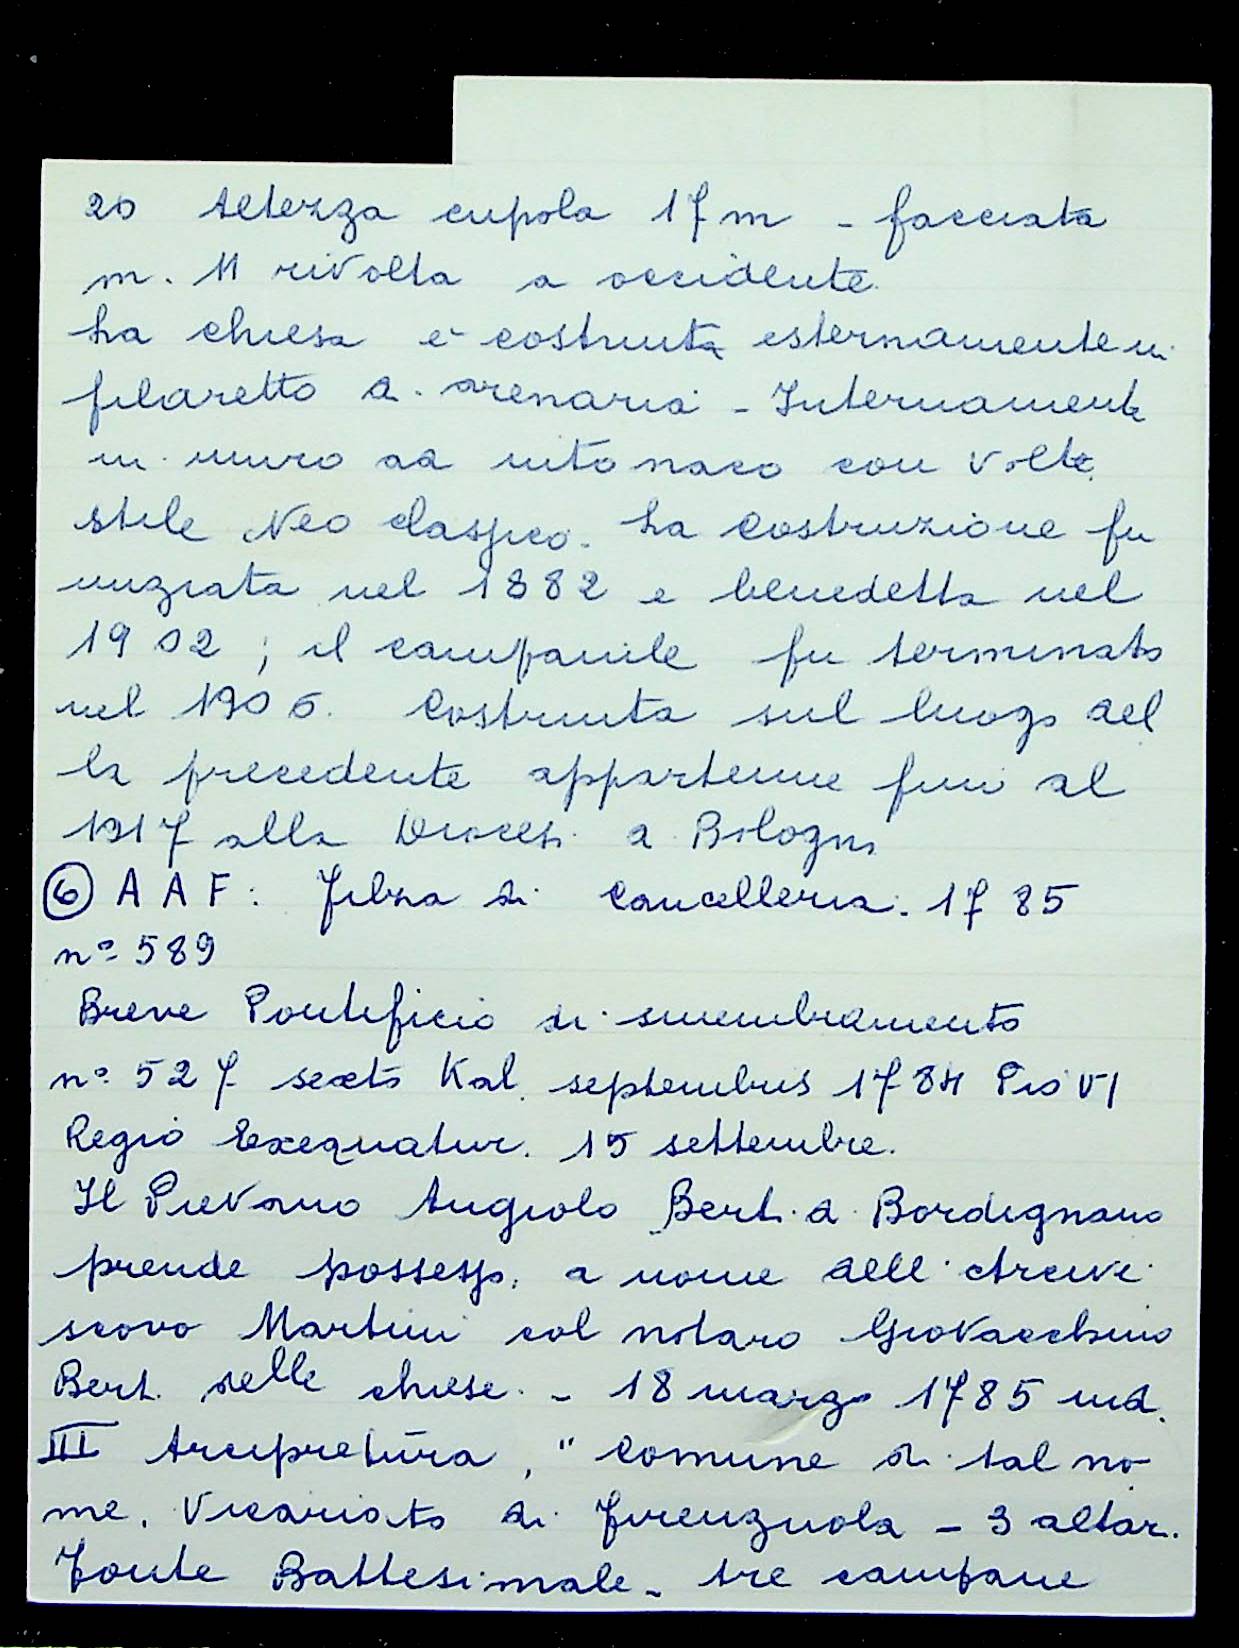 20 Altezza cupola 17 m - facciata
m. 11 rivolta a occidente.
La chiesa è costruita esternamente in
filaretto di arenaria - Internamente
in muro ad intonaco con volte.
stile Neo classico. La costruzione fu
iniziata nel 1882 e benedetta nel
1902; il campanile fu terminato
nel 1906. Costruita sul luogo del
la precedente appartenne fino al
1917 alla Diocesi di Bologna
⑥ A A F: Filza di Cancelleria. 1785
n° 589
Breve Pontificio di smembramento
n° 527 sexto Kal. septembris 1784 Pio VI
Regio Exequatur. 15 settembre.
Il Pievano Angiolo Berti di Bordignano
prende possesso, a nome dell'Arcive
scovo Martini col notaro Giovacchino
Berti delle chiese. - 18 marzo 1785 ind.
III Arcipretura, " Comune di tal no
me. Vicariato di Firenzuola - 3 altari.
Fonte Battesimale - tre campane